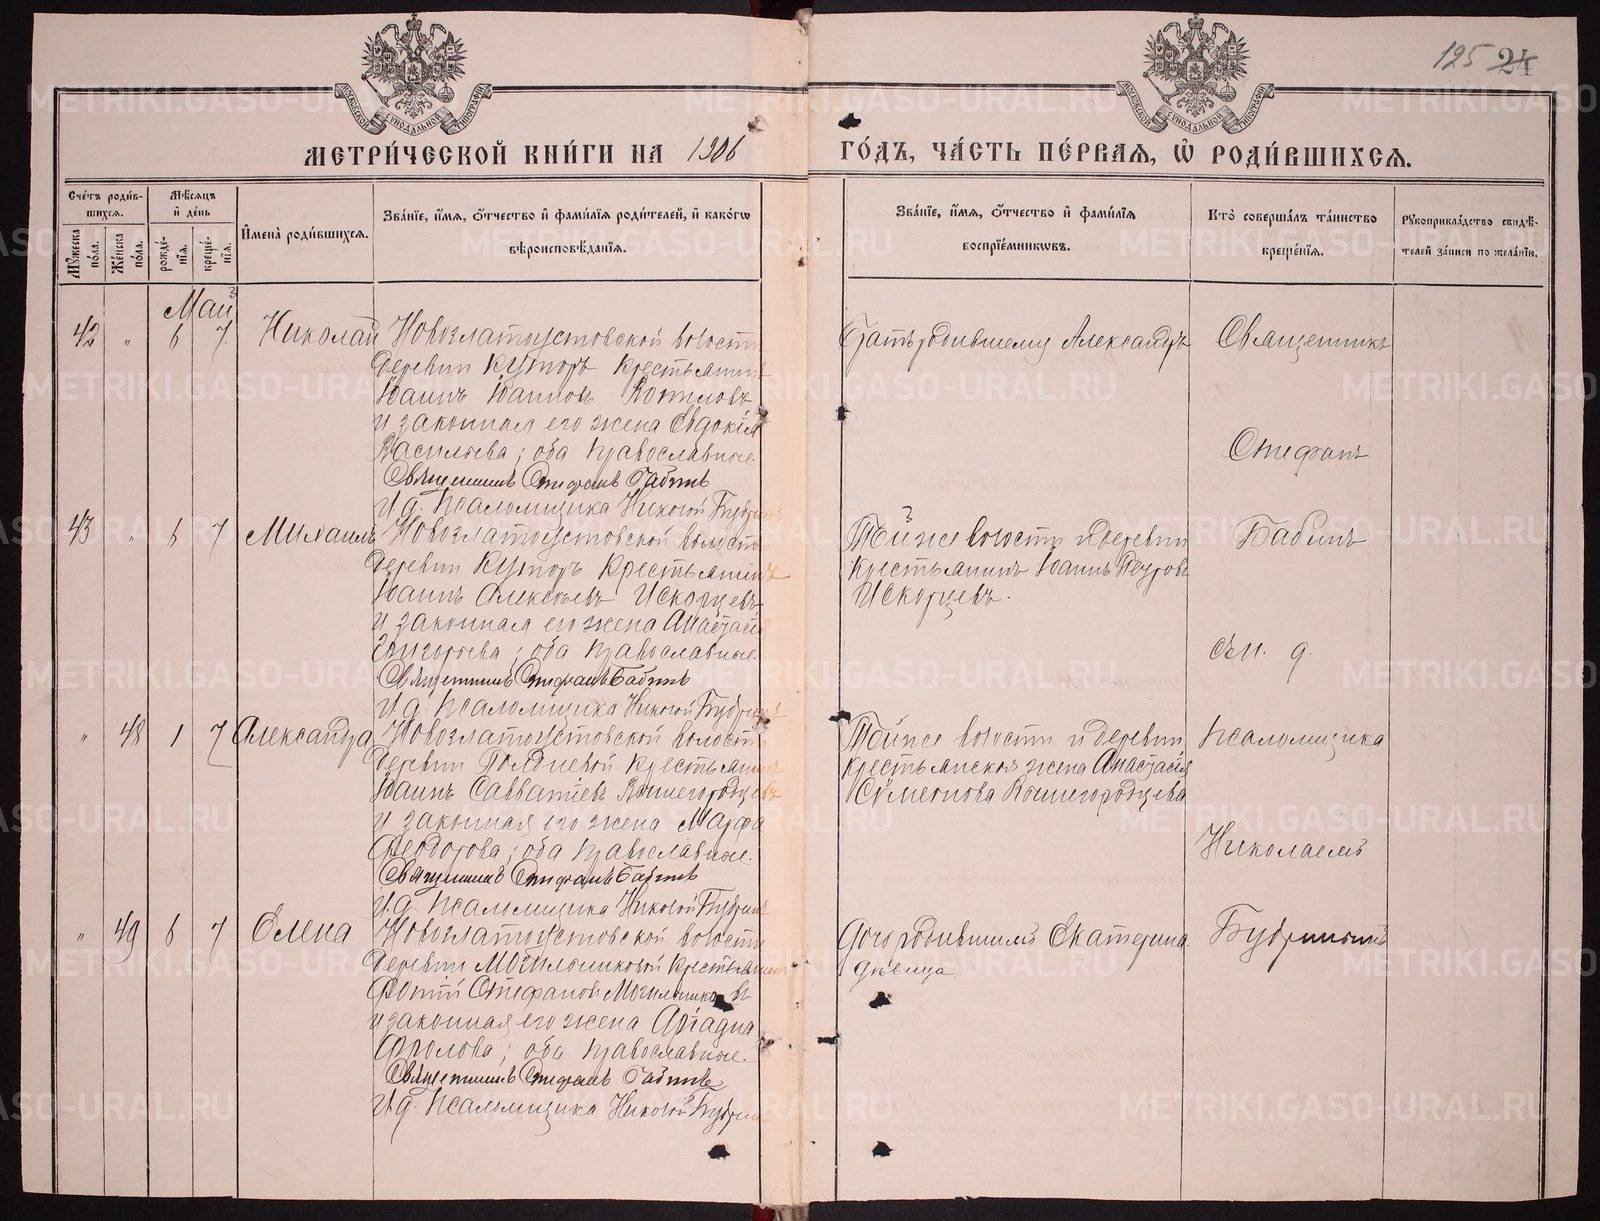 МОСКОВСКОЙ СѴНОДАЛЬНОЙ ТИПОГРАФІИ
МОСКОВСКОЙ СѴНОДАЛЬНОЙ ТИПОГРАФІИ
125 24
МЕТРИ́ЧЕСКОЙ КНИ́ГИ НА 1906
ГО́ДЪ, ЧА́СТЬ ПЕ́РВАЯ, Ѡ҆ РОДИ́ВШИХСЯ.
Сче́тъ роди́в-
шихся.
Мѣ́сяцъ
и҆ де́нь
Мꙋ́жеска по́ла.
Же́нска по́ла.
рожде́-нїя.
креще́-нїя.
И҆мена̀ роди́вшихся.
Зва́нїе, и҆́мя, ѻ҆́тчество и҆ фами́лїя роди́телей, и҆ како́гѡ
вѣроисповѣ́данїя.
Зва́нїе, и҆́мя, ѻ҆́тчество и҆ фами́лїя
воспрїе́мникѡвъ.
Кто̀ соверша́лъ та́инство
креще́нїя.
Рꙋкоприкла́дство свидѣ́-
телей за́писи по жела́нїю.
Май
42 " 6 7. Николай
Новозлатоустовской волости
деревни Кутюръ крестьянинъ
Іоаннъ Іоанновъ
и законная его жена Евдокія
Васильева; оба православные.
Священникъ Стефанъ Бабинъ
И. д. псаломщика Николай Будрин
Братъ родившему Александръ
Священникъ
Стефанъ
43 " 6 7 Михаилъ
Новозлатоустовской волости
деревни Кутюръ крестьянинъ
Іоаннъ Алексѣевъ Искорцевъ
и законная его жена Анастасія
Григорьева; оба православные.
Священникъ Стефанъ Бабинъ
И. д. псаломщика Николай Будрин
Той же волости и деревни
крестьянинъ Іоаннъ Петровъ
Искорцевъ.
Бабинъ
съ и. д.
" 48 1 7 Александра
Новозлатоустовской волости
деревни крестьянинъ
Іоаннъ Савватіевъ
и законная его жена Марѳа
Ѳеодорова; оба православные.
Священникъ Стефанъ Бабинъ
И. д. псаломщика Николай Будрин
Той же волости и деревни
крестьянская жена Анастасія
Сѵмеонова
псаломщика
Николаемъ
" 49 6 7 Елена
Новозлатоустовской волости
деревни Могильниковой крестьянинъ
Фотій Стефановъ Могильниковъ
и законная его жена Аріадна
Фролова; оба православные.
Священникъ Стефанъ Бабинъ
И. д. псаломщика Николай Будрин
Дочь родившимъ Екатерина
дѣвица.
METRIKI.GASO-URAL.RU